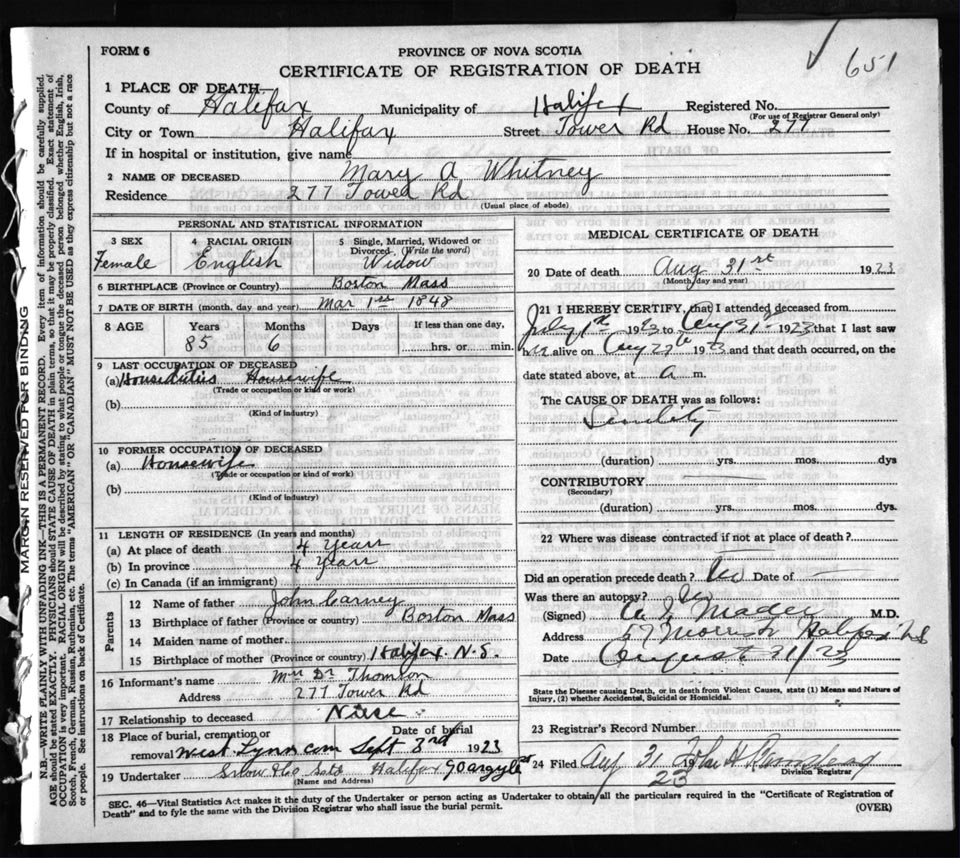 651
FORM 6
PROVINCE OF NOVA SCOTIA
CERTIFICATE OF REGISTRATION OF DEATH
1 PLACE OF DEATH
County of Halifax Municipality of Halifax Registered No.
(For use of Registrar General only)
City or Town Halifax Street Tower Rd House No. 277
If in hospital or institution, give name
2 NAME OF DECEASED Mary A Whitney
Residence 277 Tower Rd
(Usual place of abode)
PERSONAL AND STATISTICAL INFORMATION
3 SEX 4 RACIAL ORIGIN 5 Single, Married, Widowed or
Divorced (Write the word)
Female English Widow
6 BIRTHPLACE (Province or Country) Boston Mass
7 DATE OF BIRTH (month, day and year) Mar 1st 1848
8 AGE Years Months Days If less than one day,
85 6 hrs. or min.
9 LAST OCCUPATION OF DECEASED
(a) Houseduties Housewife
(Trade or occupation or kind or work)
(b)
(Kind of industry)
10 FORMER OCCUPATION OF DECEASED
(a) Housewife
(Trade or occupation or kind of work)
(b)
(Kind of industry)
11 LENGTH OF RESIDENCE (In years and months)
(a) At place of death 4 years
(b) In province 4 years
(c) In Canada (if an immigrant)
Parents
12 Name of father John Carney
13 Birthplace of father (Province or country) Boston Mass
14 Maiden name of mother
15 Birthplace of mother (Province or country) Halifax N.S.
16 Informant's name Mrs Dr Thomson
Address 277 Tower Rd
17 Relationship to deceased Niese
18 Place of burial, cremation or Date of burial
removal West Lynn cem Sept 3rd 1923
19 Undertaker Snow & Co Halifax 90 argyle St
(Name and Address)
MEDICAL CERTIFICATE OF DEATH
20 Date of death Aug 31st 1923
(Month, day and year)
21 I HEREBY CERTIFY, that I attended deceased from
July 1st 1923 to Aug 31st 1923 that I last saw
her alive on Aug 27th 1923 and that death occurred, on the
date stated above, at a m.
The CAUSE OF DEATH was as follows:
Senility
(duration) yrs. mos. dys
CONTRIBUTORY
(Secondary)
(duration) yrs. mos. dys.
22 Where was disease contracted if not at place of death?
Did an operation precede death? No Date of
Was there an autopsy? No
(Signed) Mader M.D.
Address 57 Morris St Halifax N.S
Date August 31/23
State the Disease causing Death, or in death from Violent Causes, state (1) Means and Nature of
Injury, (2) whether Accidental, Suicidal or Homicidal.
23 Registrar's Record Number
24 Filed Aug 31 19 John H
23 Division Registrar
SEC. 46—Vital Statistics Act makes it the duty of the Undertaker or person acting as Undertaker to obtain all the particulars required in the "Certificate of Registration of
Death" and to fyle the same with the Division Registrar who shall issue the burial permit. (OVER)
MARGIN RESERVED FOR BINDING
N.B.—WRITE PLAINLY WITH UNFADING INK—THIS IS A PERMANENT RECORD. Every item of information should be carefully supplied.
AGE should be stated EXACTLY. PHYSICIANS should STATE CAUSE OF DEATH in plain terms, so that it may be properly classified. Exact statement of
OCCUPATION is very important. RACIAL ORIGIN will be described by stating to what people or tongue the deceased person belonged whether English, Irish,
Scotch, French, German, Russian, Ruthenian, etc. The terms "AMERICAN" OR "CANADIAN" MUST NOT BE USED as they express citizenship but not a race
or people. See instructions on back of Certificate.